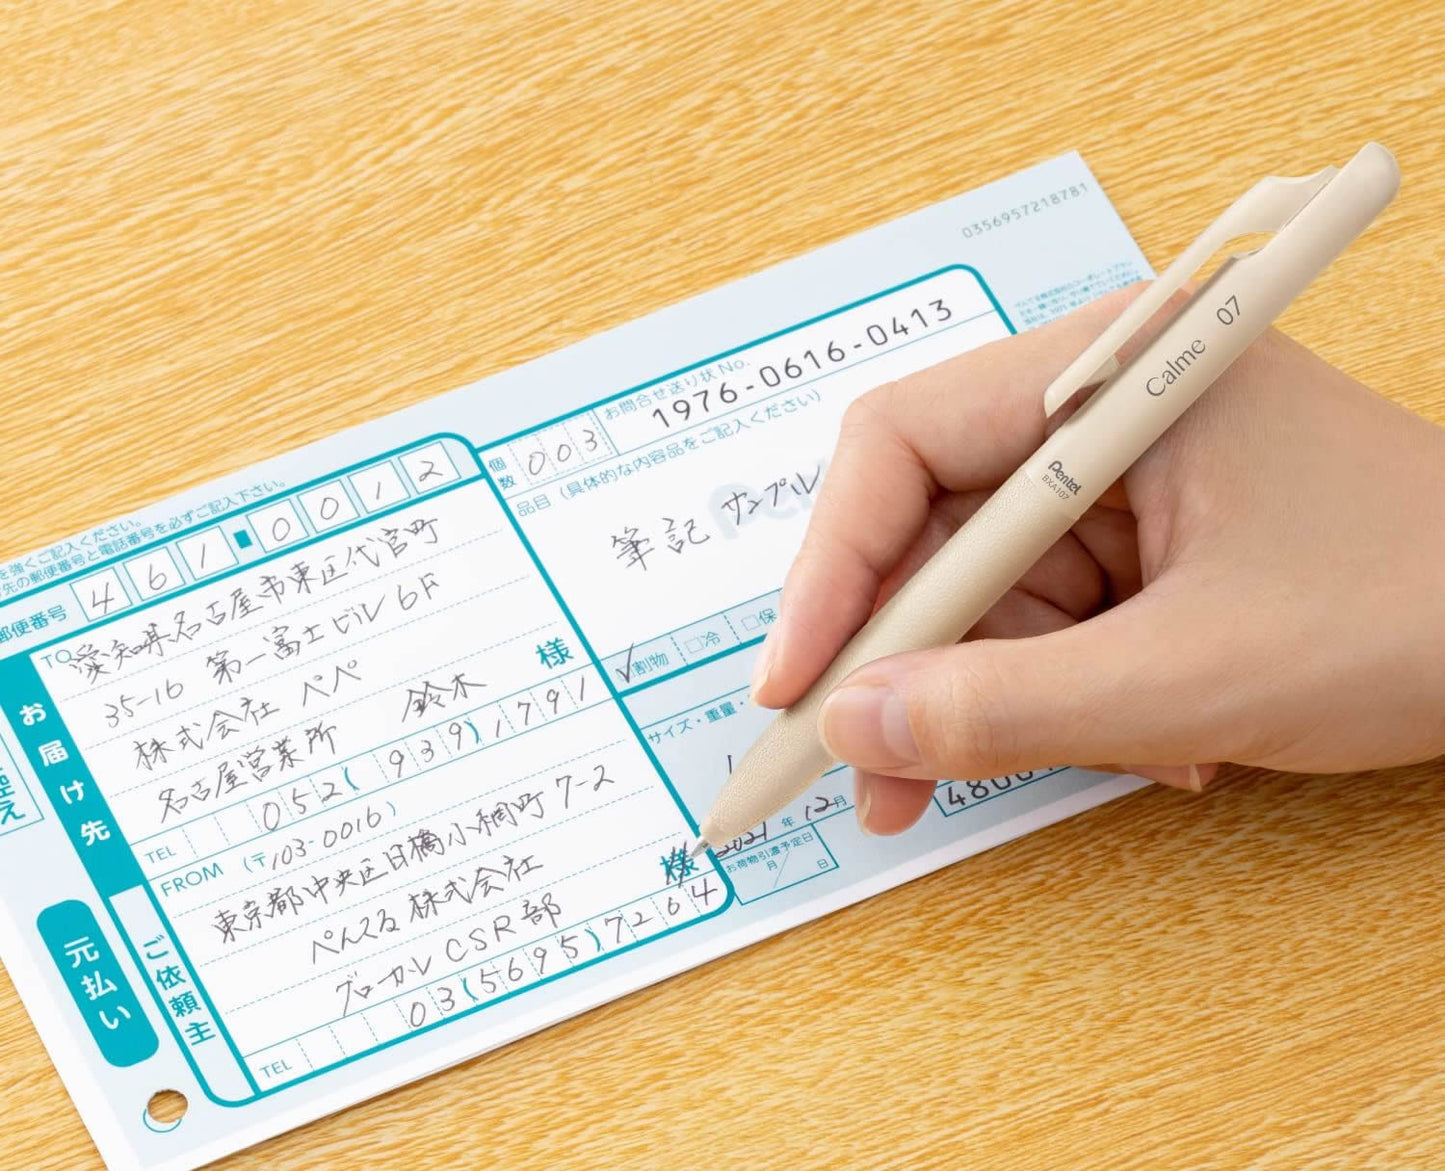 0356957218781
を強くご記入ください。
先の郵便番号と電話番号を必ずご記入下さい。
郵便番号 461-0012
TO
愛知県名古屋市東区代官町
35-16 第一富士ビル6F
株式会社 ペペ
名古屋営業所 鈴木 様
TEL 052(939)1791
お届け先
FROM (〒103-0016)
東京都中央区日本橋小網町7-2
ぺんてる 株式会社
グローカル CSR部 様
TEL 03(5695)7264
ご依頼主
元払い
個数 003
お問合せ送り状No.
1976-0616-0413
品目(具体的な内容品をご記入ください)
筆記 サンプル
割物 □冷 □保
サイズ・重量・
2021年12月
お荷物引渡予定日
月/日
Calme 07
Pentel
BXA107